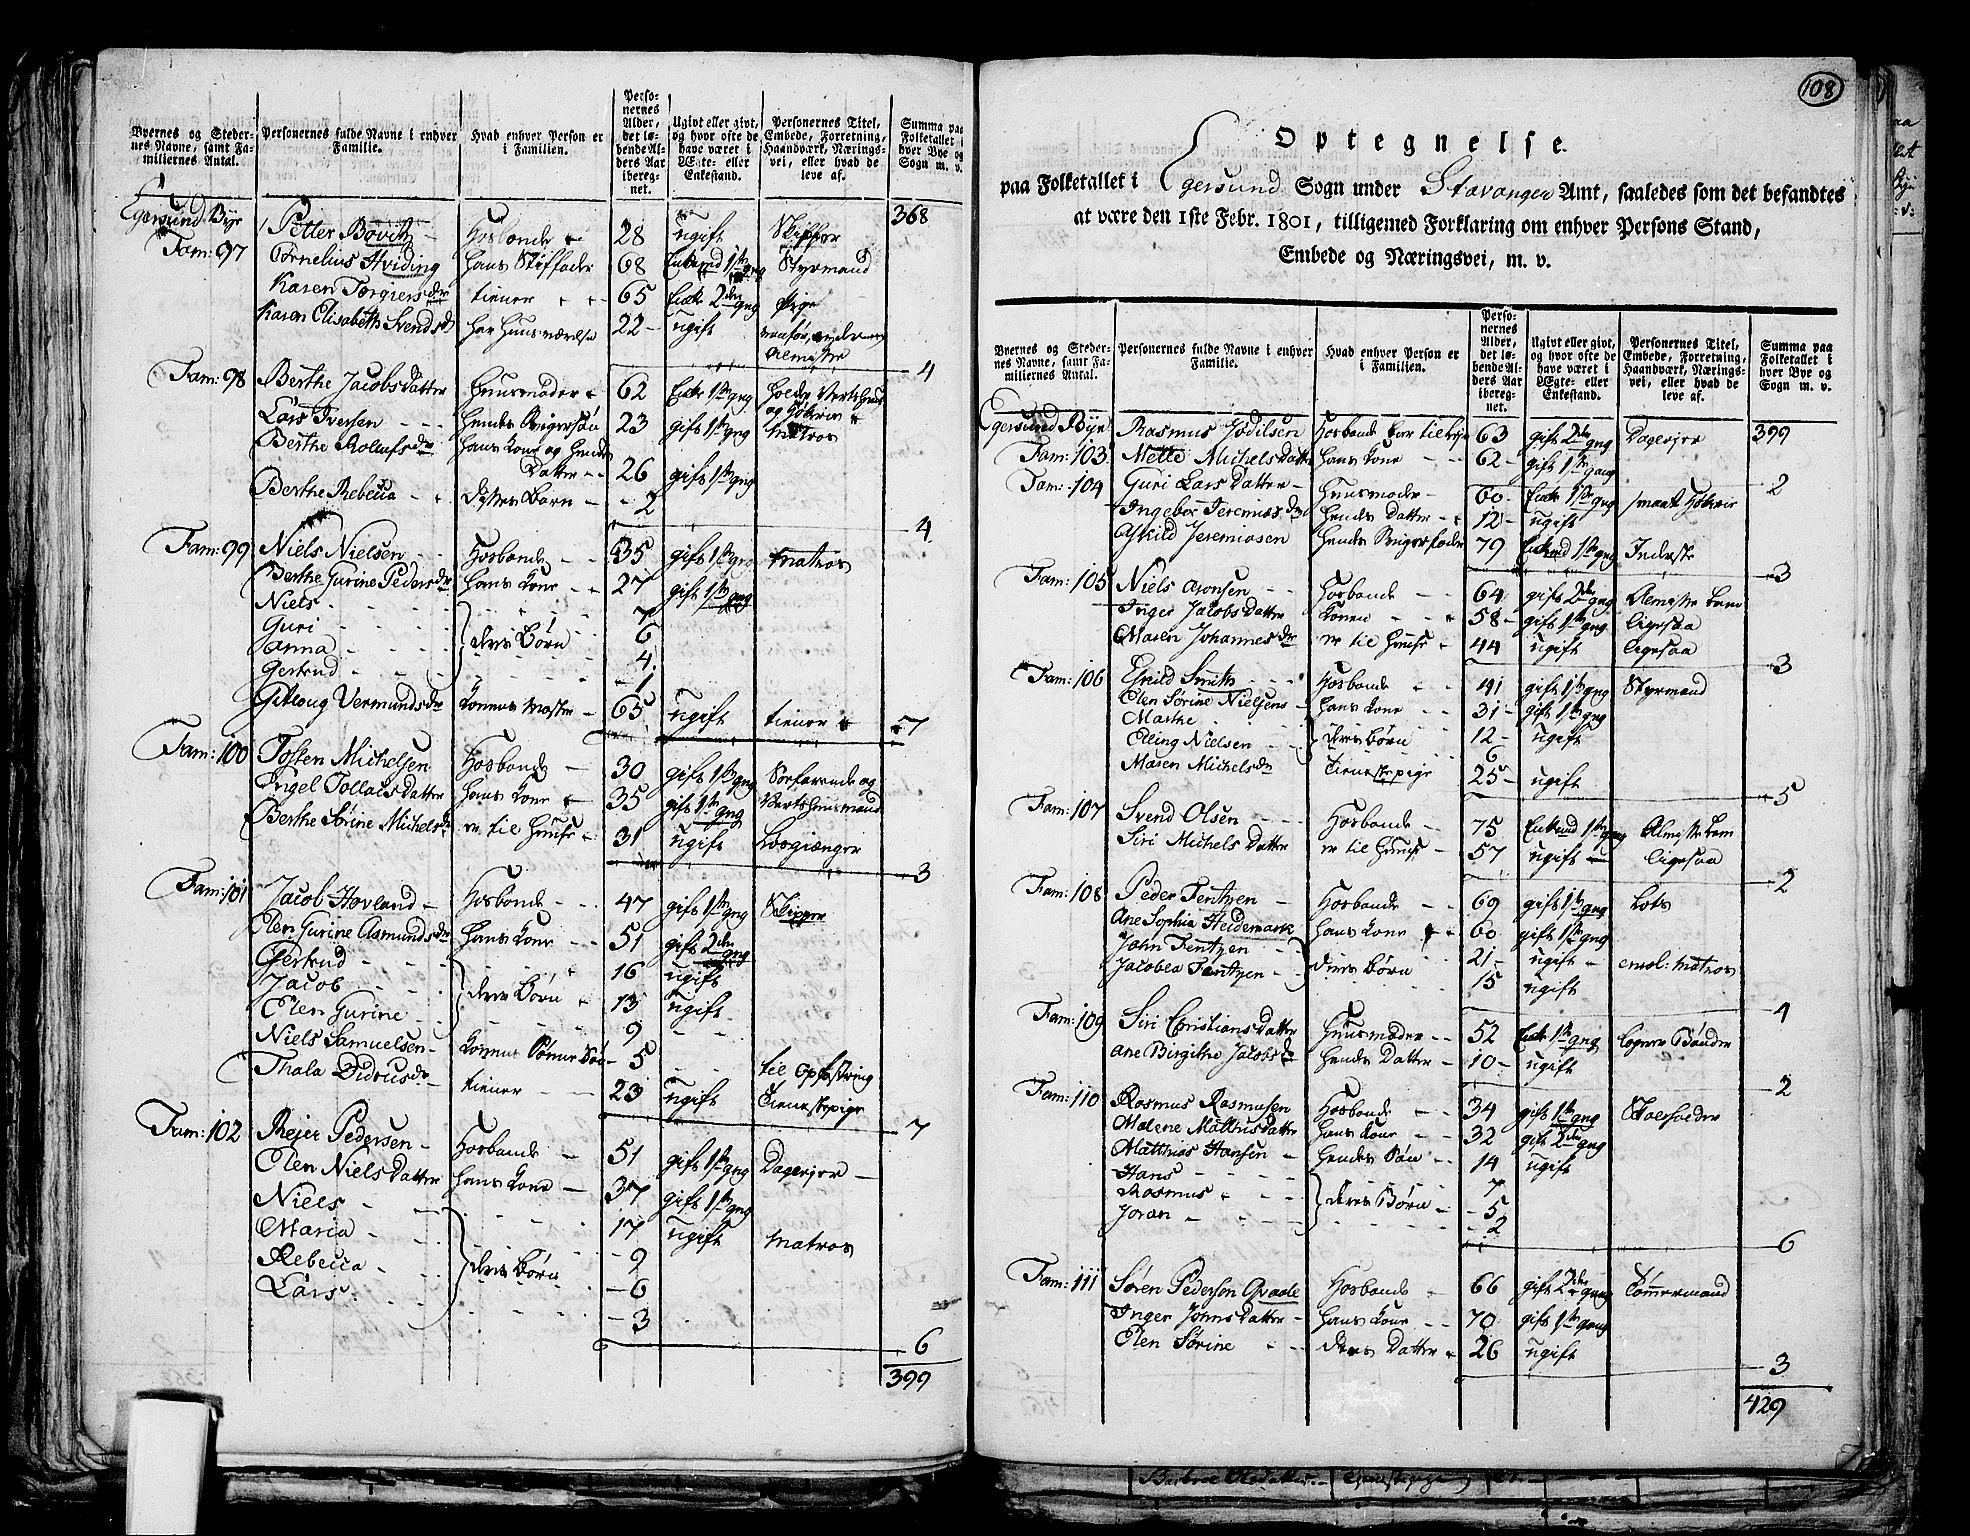 Byernes og Steder-
nes Navne, samt Fa-
miliernes Antal.
Personernes fulde Navne i enhver
Familie.
Hvad enhver Person er
i Familien.
Perso-
nernes
Alder,
det lø-
bende Al-
ders Aar
iberegn-
net.
Ugivt eller givt,
og hvor ofte de
have været i
Ægte- eller
Enkestand.
Personernes Titel,
Embede, Forretning,
Haandværk, Nærings-
vei, eller hvad de
leve af.
Summa paa
Folketallet i
hver Bye og
Sogn m. v.
Egersund Bye 368
Fam: 97 Petter Bovitz Hosbonde 28 ugift Skiffer
Cornelius Hviding hans Stiffader 68 Enkemd 1ste gng Styrmand
Karen Torgiersdr tiener 65 Enke 2den gng Pige
Karen Elisabeth Svendsd har huusværelse 22 ugift
Almisse
4
Fam: 98 Berthe Jacobsdatter Huusmoder 62 Enke 1ste gng Holder Vertshuus og Høkerie
Lars Iversen hendes Svigersøn 23 gift 1ste gng Matros
Berthe Rolufsdr hans Kone og hendes Datter 26 gift 1ste gng
Berthe Rebecca disses Barn 2
4
Fam: 99 Niels Nielsen Hosbonde 35 gift 1ste gng Matros
Berthe Gurine Pedersdr hans Kone 27 gift 1ste gng
Niels 7
Guri deres Børn 6
Anna 4
Gertrud 1
Gitloug Vermundsdr Konens Moster 65 ugift tiener
7
Fam: 100 Tosten Michelsen Hosbonde 30 gift 1ste gng Søefarende og
Ingel Tollacsdatter hans Kone 35 gift 1ste gng Vertshuusmand
Berthe Sørine Michelsd er til Huuse 31 ugift Løsgiænger
3
Fam: 101 Jacob Hovland Hosbonde 47 gift 1ste gng Skipper
Elen Gurine Asmundsdr hans Kone 51 gift 2den gng
Gertrud 16 ugift
Jacob deres Børn 13 ugift
Elen Gurine 9
Niels Samuelsen Konens Sønne Søn 5 til Opfostring
Thala Didricsdr tiener 23 ugift Tienestepige
7
Fam: 102 Rejer Pedersen Hosbonde 51 gift 1ste gng Dagleyer
Elen Nielsdatter hans Kone 37 gift 1ste gng
Niels 17 ugift Matros
Maria 9
Rebecca deres Børn 6
Lars 3
6
399
108
Optegnelse
paa Folketallet i Egersund Sogn under Stavanger Amt, saaledes som det befandtes
at være den 1ste Febr. 1801, tilligemed Forklaring om enhver Persons Stand,
Embede og Næringsvei, m. v.
Byernes og Steder-
nes Navne, samt Fa-
miliernes Antal.
Personernes fulde Navne i enhver
Familie.
Hvad enhver Person er
i Familien.
Perso-
nernes
Alder,
det lø-
bende Al-
ders Aar
iberegn-
net.
Ugivt eller givt,
og hvor ofte de
have været i
Ægte- eller
Enkestand.
Personernes Titel,
Embede, Forretning,
Haandværk, Nærings-
vei, eller hvad de
leve af.
Summa paa
Folketallet i
hver Bye og
Sogn m. v.
Egersund Bye Rasmus Jodilsen Hosbonde 63 gift 2den gng Dagleyer 399
Fam: 103 Mette Michelsdatter hans Kone 62 gift 1ste gang
2
Fam: 104 Guri Larsdatter Huusmoder 60 Enke 1ste gng smaat Høkerie
Ingebor Jeremiasdr hendes Datter 12 ugift
Eskild Jeremiasen hendes Svigerfader 79 Enkemd 1ste gng Inderste
3
Fam: 105 Niels Aronsen Hosbonde 64 gift 2den gng Almisse Lem
Inger Jacobsdatter Konen 58 gift 1ste gng ligesaa
Maren Johannesdr er til Huuse 44 ugift ligesaa
3
Fam: 106 Eskild Smith Hosbonde 41 gift 1ste gng Styrmand
Elen Sørine Nielsens hans Kone 31 gift 1ste gng
Marthe deres Børn 12 ugift
Elling Nielsen 6
Maren Michelsdr Tienestepige 25 ugift
5
Fam: 107 Svend Olsen Hosbonde 75 Enkemd 1ste gang Almisse Lem
Siri Michelsdatter er til Huuse 57 ugift ligesaa
2
Fam: 108 Peder Fentzen Hosbonde 69 gift 1ste gng Lots
Ane Sophia Heidemark hans Kone 60 gift 1ste gng
John Fentzen deres Børn 21 ugift enrol: Matros
Jacobea Fentzen 15 ugift
4
Fam: 109 Siri Christiansdatter Huusmoder 52 Enke 1ste gng logerer Bønder
Ane Birgithe Jacobsdr hendes Datter 10 ugift
2
Fam: 110 Rasmus Rasmusen Hosbonde 34 gift 1ste gng
Malene Mathisdatter hans Kone 32 gift 2den gng
Matthias Hansen hendes Søn 14 ugift
Hans 7
Rasmus deres Børn 5
Joran 2
6
Fam: 111 Søren Pederson Qvaale Hosbonde 66 gift 2den gang Tømmermand
Inger Jonnsdatter hans Kone 70 gift 1ste gang
Elen Sørine deres Datter 26 ugift
3
429